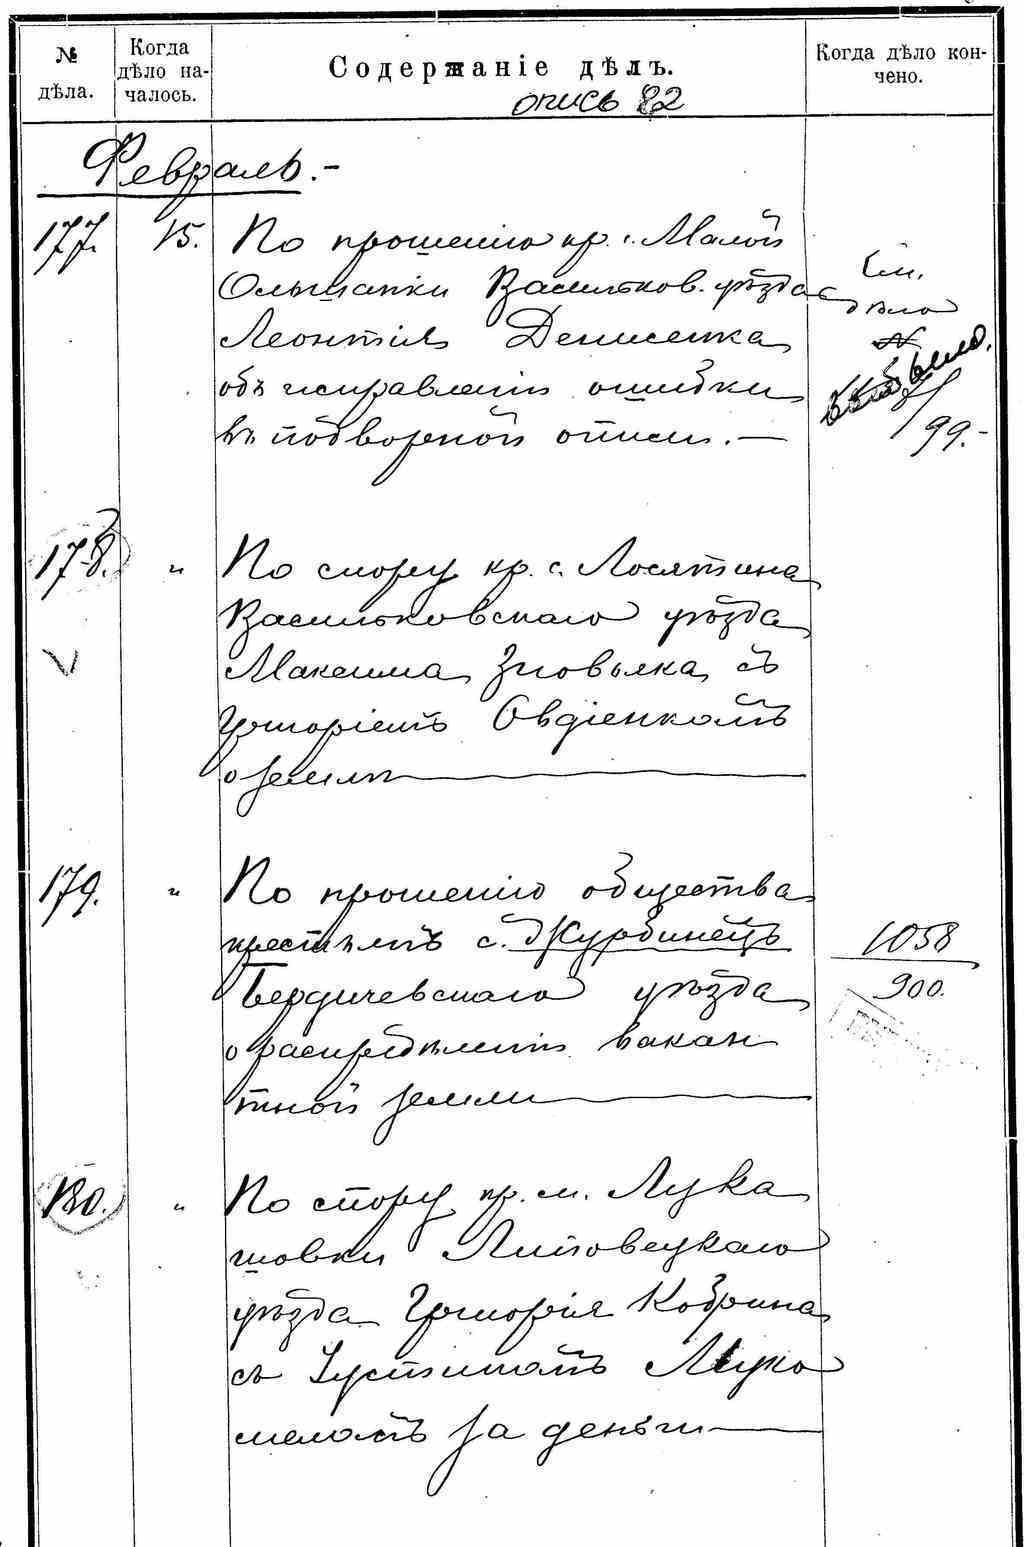 № дѣла.
Когда дѣло на-
чалось.
Содержаніе дѣлъ.
Когда дѣло кон-
чено.
опись 82
Февраль.-
177. 15. По прошенію кр. с. Малой
Ольшанки Васильков. уѣзда
Леонтія Денисенка
объ исправленіи ошибки
въ подворной описи.—
См.
дѣло
99.-
178. " По спору кр. с. Лосятина
Васильковскаго уѣзда
Максима Зновьяка съ
Григоріемъ Овдіенкомъ
о землѣ
179. " По прошенію общества
крестьянъ с. Журбинецъ
Бердичевскаго уѣзда
о распредѣленіи вакан
тной земли
1058
900.
180. " По спору кр. м. Лука
шовки Липовецкаго
уѣзда Григорія Кобрина
съ Іустиномъ Муко
меломъ за деньги